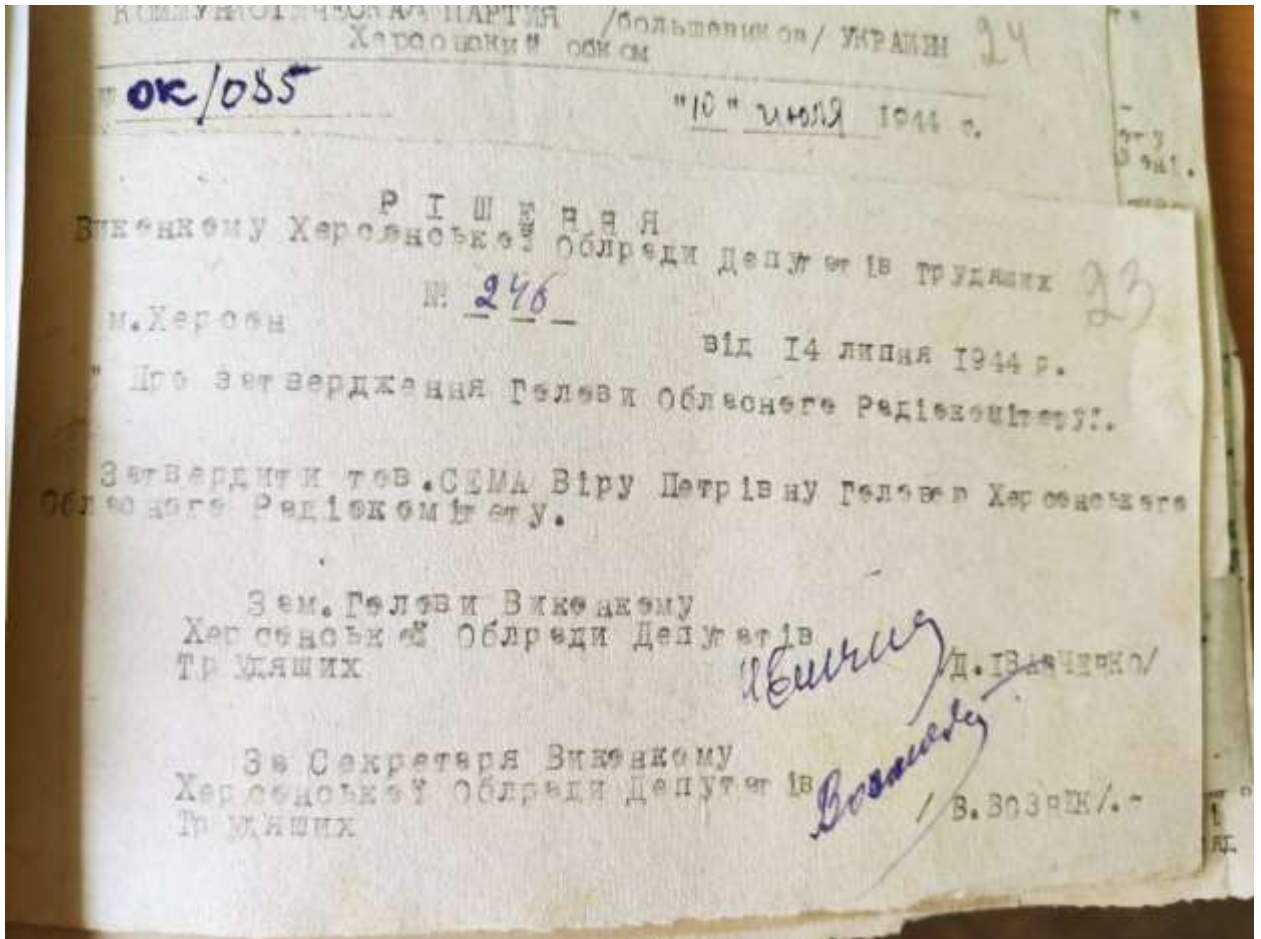 КОММУНИСТИЧЕСКАЯ ПАРТИЯ /большевиков/ УКРАИНЫ 24
Херсонский обком
№ ОК/035
"10" июля 1944 г.
РІШЕННЯ
Виконкому Херсонської Облради Депутатів трудящих 23
№ 246
м.Херсон
від 14 липня 1944 р.
" Про затвердження Голови Обласного Радіокомітету".
Затвердити тов.СЕМА Віру Петрівну Головою Херсонського
Обласного Радіокомітету.
Зам.Голови Виконкому
Херсонської Облради Депутатів
Трудящих
/Д.ІВАНЧЕНКО/
За Секретаря Виконкому
Херсонської Облради Депутатів
Трудящих
/В.ВОЗНЮК/.-